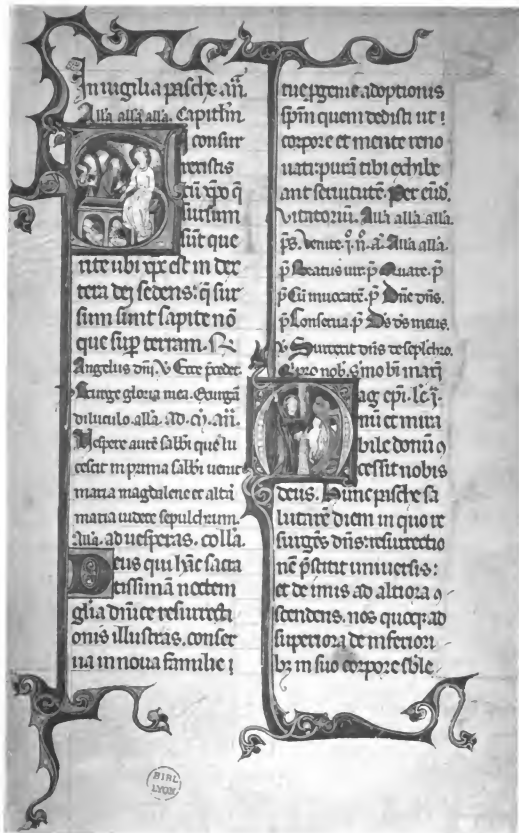 In uigilia pasche añ.
All'a all'a all'a. Capitl'm
i consur
rexistis
cũ xpo q̃
sursum
sũt que
rite ubi xp̃c est in dex
tera dei sedens: q̃ sur
sum sunt sapite nõ
que sup terram. R̃
Angelus dñi. v̉ Ecce p̃cedet.
Exurge gloria mea. Exurgã
diluculo all'a. ad. añ.
Vespere autẽ sabb̃i que lu
cescit in prima sabb̃i uenit
maria magdalene et altã
maria uidere sepulchrum.
All'a. ad uesperas. coll'a.
Deus qui hãc sacra
tissimã noctem
gl'ia dñice resurrecti
onis illustras. conser
ua in noua familie
tue p̃genie. adoptionis
sp̃m quem dedisti ut
corpore et mente reno
uati: purã tibi exhibe
ant seruitutẽ. Per eũd.
Vitatoriũ. All'a all'a all'a.
p̃s. Venite. All'a all'a.
p̃ Beatus uir. p̃ Quare. p̃
p̃ Cũ inuocarẽ. p̃ Dñe dñs.
p̃ Conserua p̃ Ds ds meus.
v̉ Surrexit dñs de sep̃lchro.
pro nob. mo bĩ
ag ep̃i.
nũ et mira
bile donũ ꝯ
cessit nobis
deus. Hunc pasche sa
lutarẽ diem in quo re
surgẽs dñs: resurrectio
nẽ p̃stitit uniuersis:
et de imis ad altiora ꝯ
scendens. nos queq; ad
superiora de inferiori
bꝫ in suo corpore
BIBL
LYON